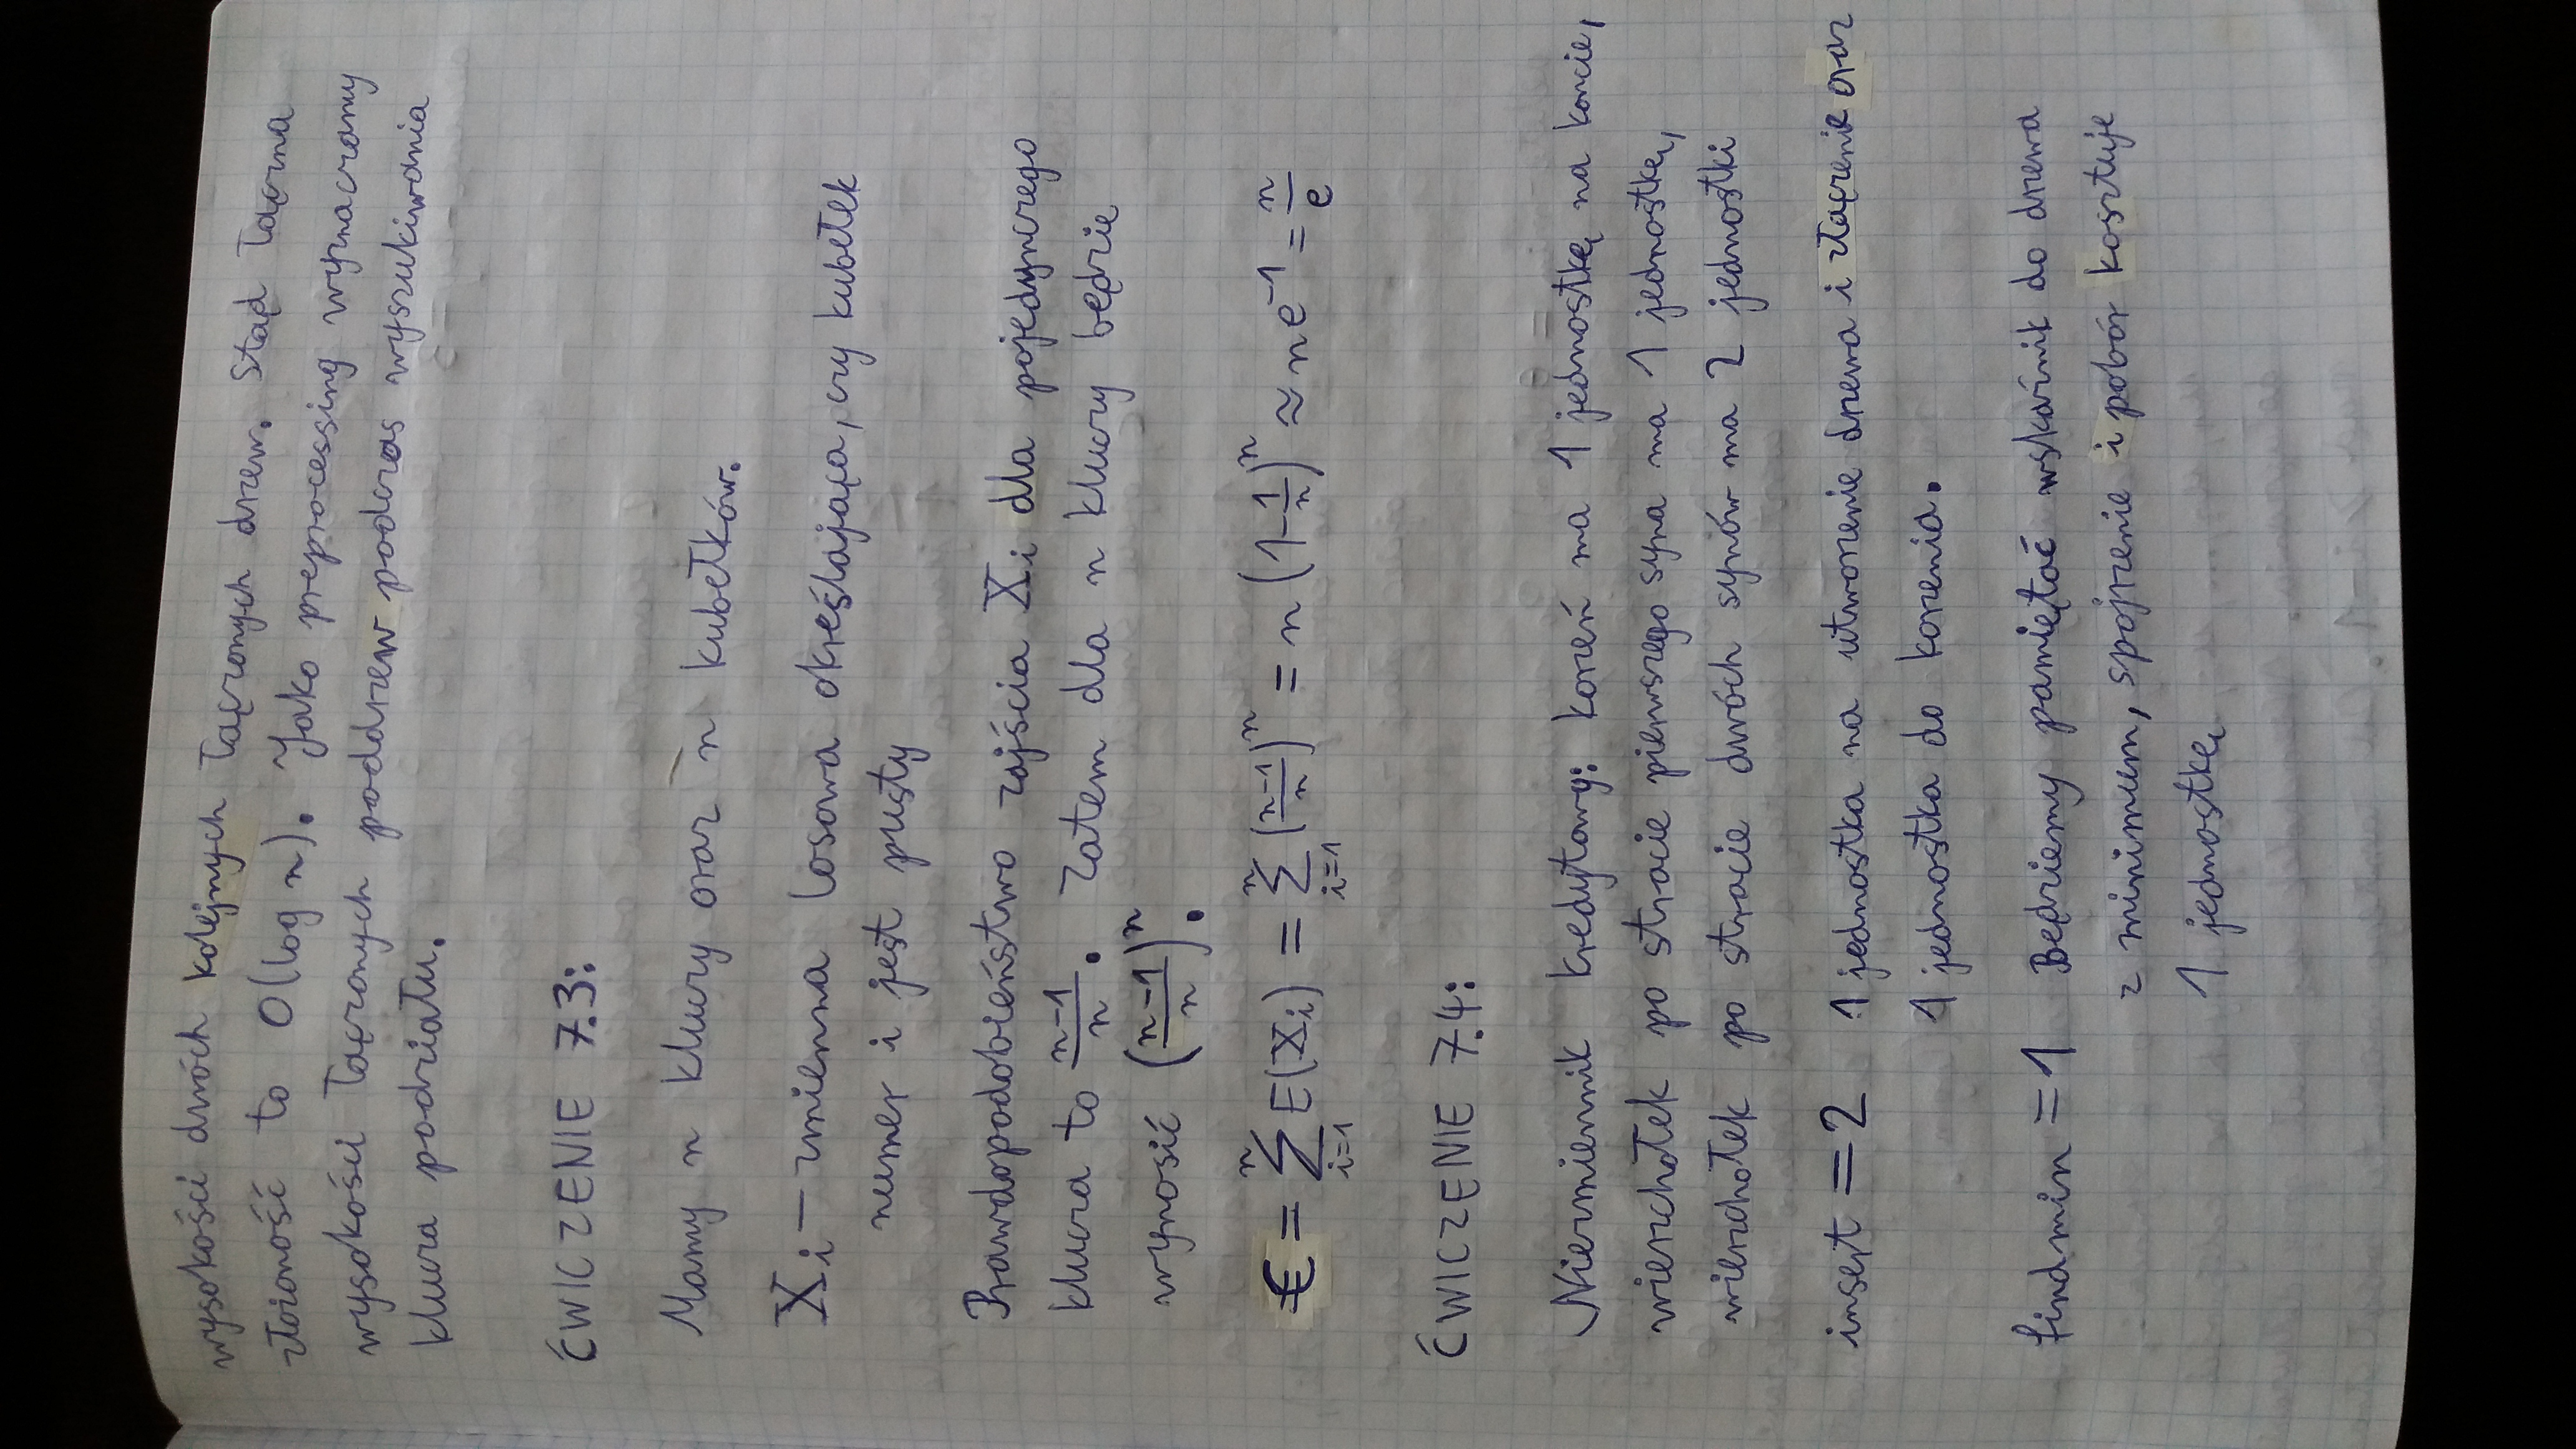 wysokości dwóch kolejnych łączonych drzew. Stąd łączna
złożoność to O(log n). Jako preprocessing wyznaczamy
wysokości łączonych poddrzew podczas wyszukiwania
klucza podziału.
ĆWICZENIE 7.3:
Mamy n kluczy oraz n kubełków.
Xi – zmienna losowa określająca, czy kubełek
numer i jest pusty
Prawdopodobieństwo zajścia Xi dla pojedynczego
klucza to \frac{n-1}{n}. Zatem dla n kluczy będzie
wynosić (\frac{n-1}{n})^n.
€ = \sum_{i=1}^{n} E(X_i) = \sum_{i=1}^{n} (\frac{n-1}{n})^n = n(1-\frac{1}{n})^n ≈ ne^{-1} = \frac{n}{e}
ĆWICZENIE 7.4:
Niezmiennik kredytowy: korzeń ma 1 jednostkę na koncie,
wierzchołek po stracie pierwszego syna ma 1 jednostkę,
wierzchołek po stracie dwóch synów ma 2 jednostki
insert = 2 1 jednostka na utworzenie drzewa i złączenie oraz
1 jednostka do korzenia.
findmin = 1 Będziemy pamiętać wskaźnik do drzewa
z minimum, spojrzenie i pobór kosztuje
1 jednostkę